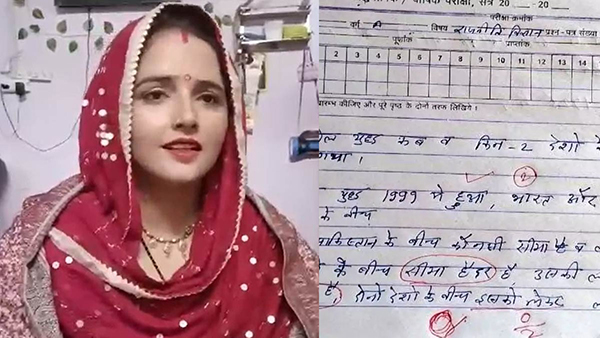 वार्षिक परीक्षा, सत्र 20 -20
परीक्षा क्रमांक
विषय राजनीति विज्ञान प्रश्न-पत्र संख्या
पूर्णांक प्राप्तांक
2 3 4 5 6 7 8 9 10 11 12 13 14
कीजिए और पूरे पृष्ठ के दोनों तरफ लिखिये।
युद्ध कब व किन-2 देशो
गया।
2
युद्ध 1999 मे हुआ, भारत और
के बीच
पाकिस्तान के बीच कौनसी सीमा है व
के बीच सीमा हैदर है उसकी
है, दोनो देशो के बीच इसको लेकर
0
0/2